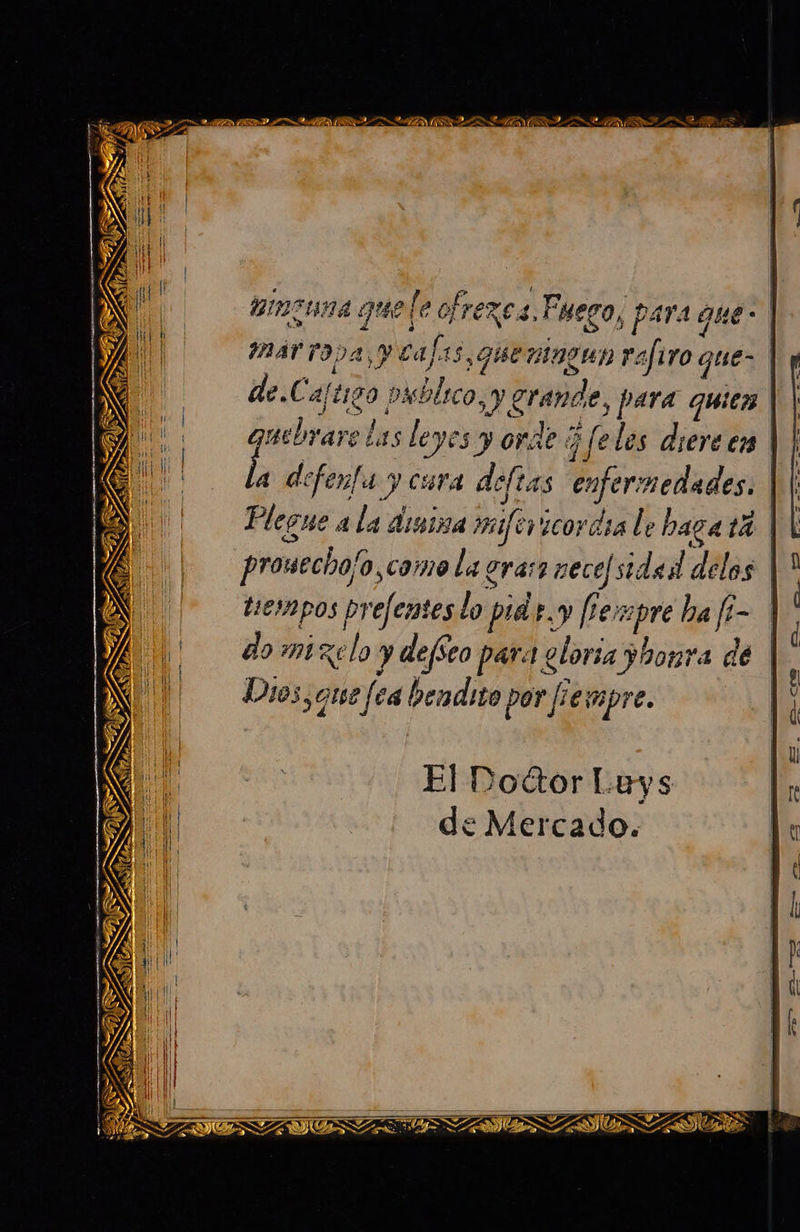 ninguna que se ofrezca. Fuego, para que-
mar ropa, y casas, que ningun rastro que-
de. Castigo publico, y grande, para quien
quebrare las leyes y ordē q̃ se les diere en
la defensa y cura destas enfermedades.
Plegue a la diuina misericordia le haga tā
prouechoso, como la gran necessidad delos
tiempos presentes lo pide. y siempre ha si-
do mi zelo y desseo para gloria y honra de
Dios, que sea bendito por siempre.
El Doctor Luys
de Mercado.